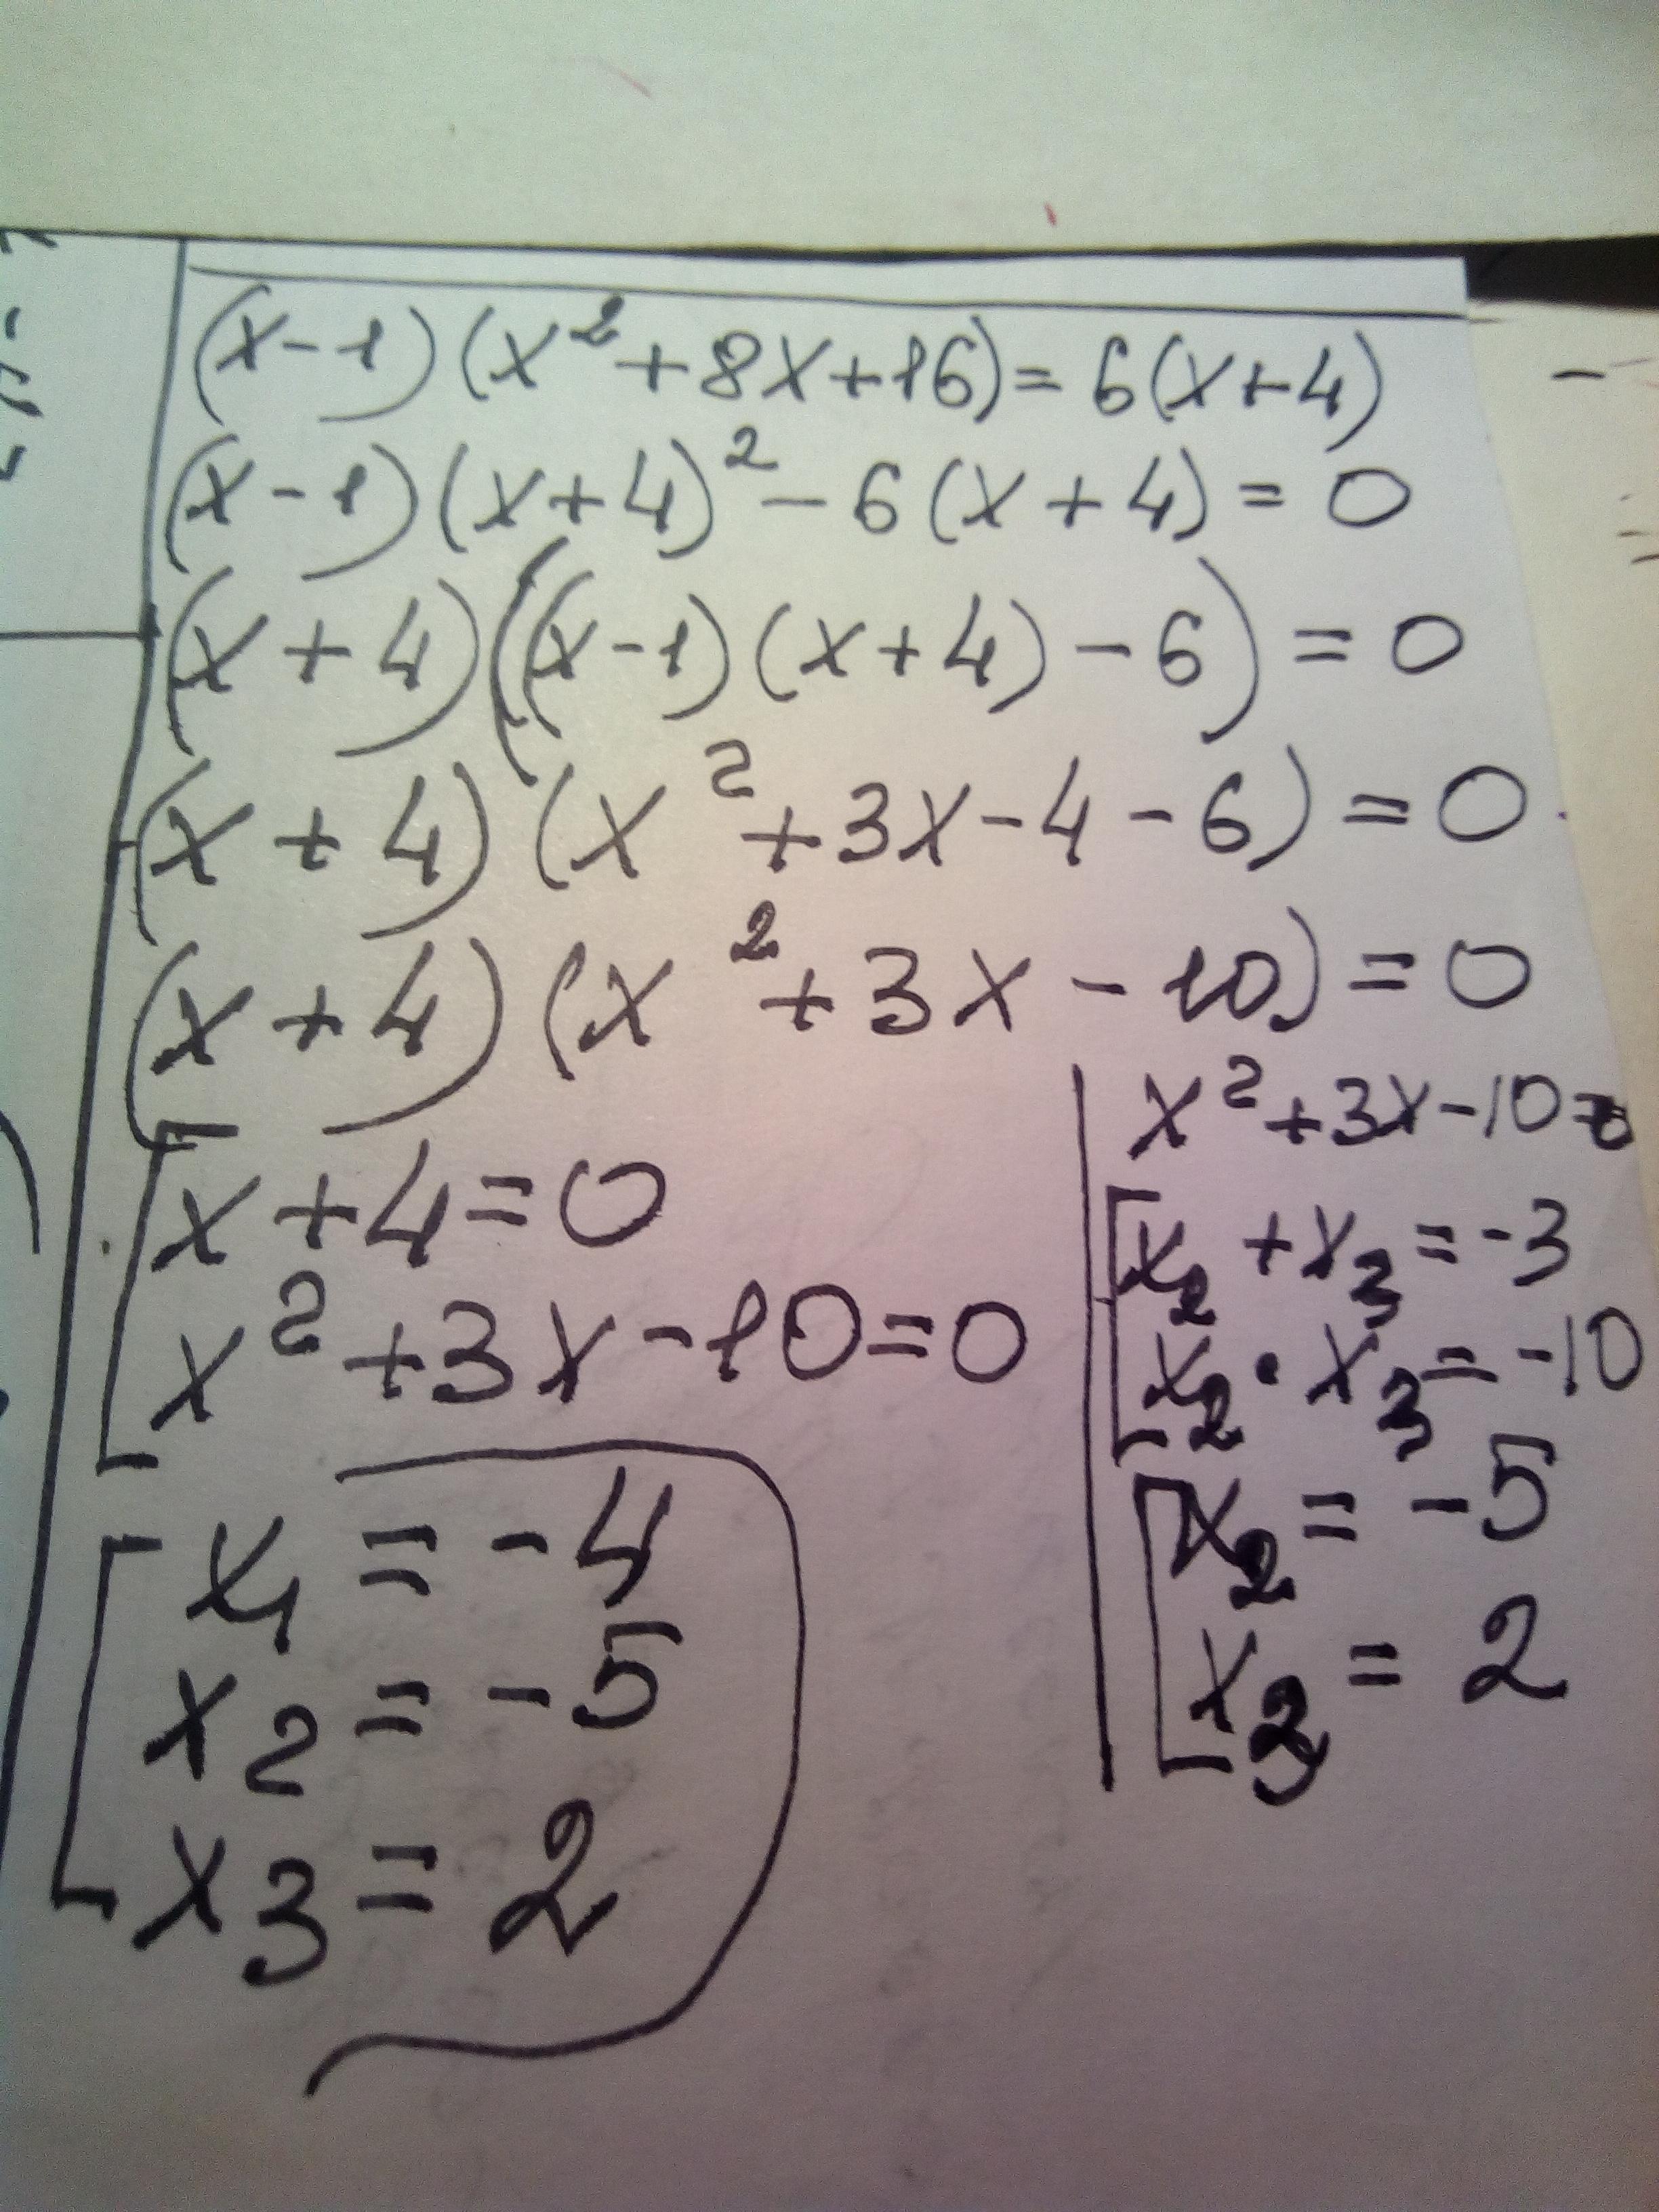 (x-1)(x²+8x+16)=6(x+4)
(x-1)(x+4)²-6(x+4)=0
(x+4)((x-1)(x+4)-6)=0
(x+4)(x²+3x-4-6)=0
(x+4)(x²+3x-10)=0
x+4=0
x²+3x-10=0
x₁=-4
x₂=-5
x₃=2
x²+3x-10=0
x₂+x₃=-3
x₂·x₃=-10
x₂=-5
x₃=2